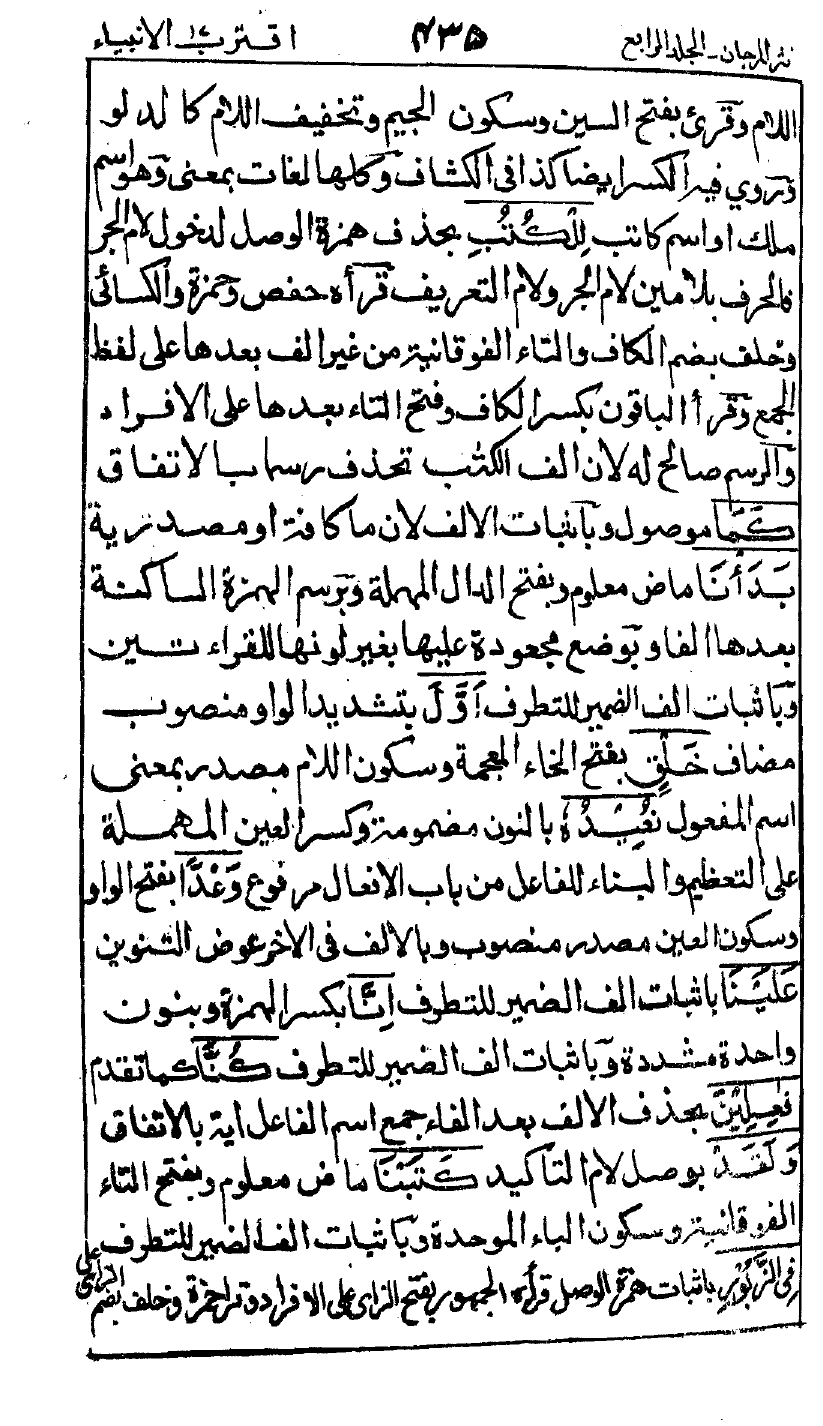 نثر المرجان - الجلد الرابع ٤٣٥ اقترب ١٧ الانبياء
اللام وقرئ بفتح السين وسكون الجيم وتخفيف اللام كالدلو
وروي فيه الكسر ايضا كذا فى الكشاف وكلها لغات بمعنى وهو اسم
ملك او اسم كاتب لِلْكُتُبِ بحذف همزة الوصل لدخول لام الجر
فالحرف بلامين لام الجر ولام التعريف قرأه حفص وحمزة والكسائى
وخلف بضم الكاف والتاء الفوقانية من غير الف بعدها على لفظ
الجمع وقرأ الباقون بكسر الكاف وفتح التاء بعدها على الافراد
والرسم صالح له لان الف الكتٰب تحذف رسما بالاتفاق
كَمَا موصول وباثبات الالف لان ما كافة او مصدرية
بَدَأْنَا ماض معلوم وبفتح الدال المهملة وبرسم الهمزة الساكنة
بعدها الفا وبوضع مجعودة عليها بغير لونها للقراءتين
وباثبات الف الضمير للتطرف أَوَّلَ بتشديد الواو منصوب
مضاف خَلْقٍ بفتح الخاء المعجمة وسكون اللام مصدر بمعنى
اسم المفعول نُعِيْدُهٗ بالنون مضمومة وكسر العين المهملة
على التعظيم والبناء للفاعل من باب الافعال مرفوع وَعْدًا بفتح الواو
وسكون العين مصدر منصوب وبالالف فى الاخر عوض التنوين
عَلَيْنَا باثبات الف الضمير للتطرف اِنَّا بكسر الهمزة وبنون
واحدة مشددة وباثبات الف الضمير للتطرف كُنَّا كما تقدم
فٰعِلِيْنَ بحذف الالف بعد الفاء جمع اسم الفاعل اية بالاتفاق
وَلَقَدْ بوصل لام التاكيد كَتَبْنَا ماض معلوم وبفتح التاء
الفوقانية وسكون الباء الموحدة وباثبات الف الضمير للتطرف
فِى الزَّبُوْرِ باثبات همزة الوصل قرأه الجمهور بفتح الزاى على الافراد وقرأ حمزة وخلف بضم
الزاى على